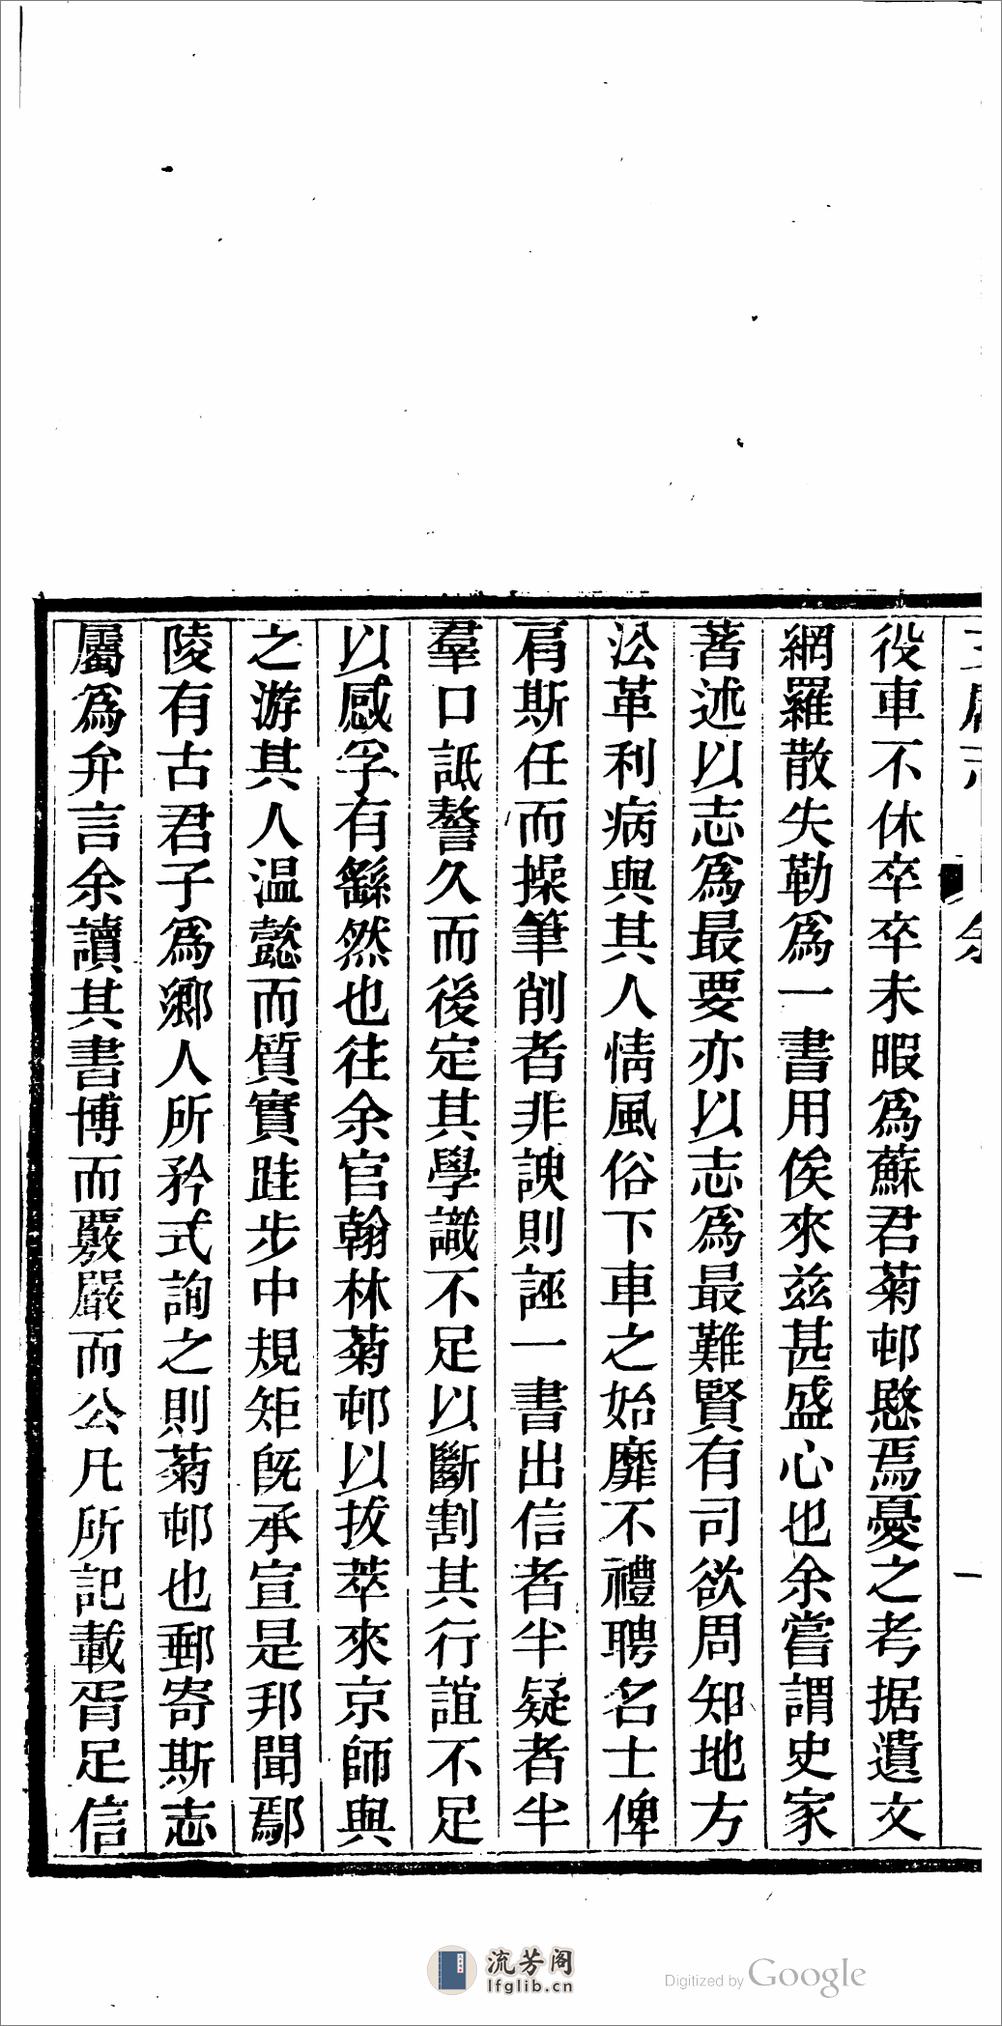 役車不休卒卒未暇爲蘇君菊邨愍焉憂之考据遺文
網羅散失勒爲一書用俟來兹甚盛心也余嘗謂史家
著述以志爲最要亦以志爲最難賢有司欲周知地方
沿革利病與其人情風俗下車之始靡不禮聘名士俾
肩斯任而操筆削者非諛則誣一書出信者半疑者半
羣口詆謷久而後定其學識不足以斷割其行誼不足
以感孚有繇然也往余官翰林菊邨以拔萃來京師與
之游其人温懿而質實跬步中規矩旣承宣是邦聞鄢
陵有古君子爲鄉人所矜式詢之則菊邨也郵寄斯志
屬爲弁言余讀其書博而覈嚴而公凡所記載胥足信
一
流芳阁
lfglib.cn
Digitized by Google